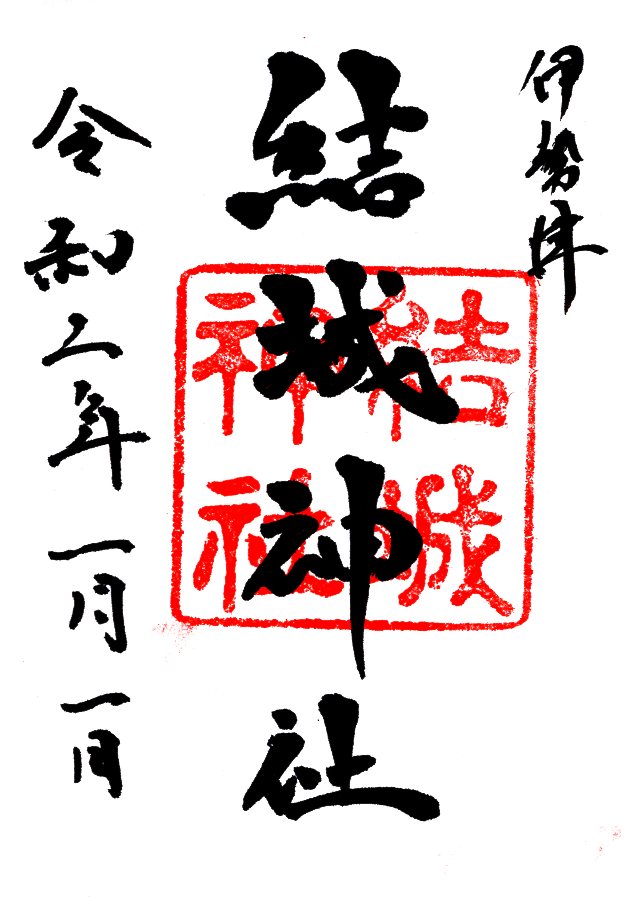 伊勢津
結城神社
結城
神社
令和二年一月一日